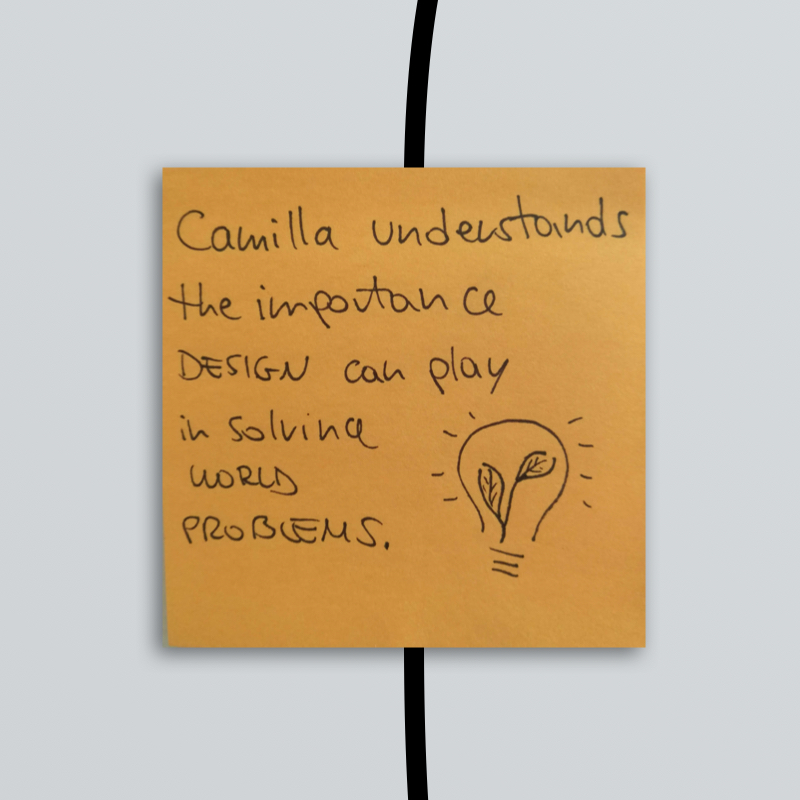 Camilla understands
the importance
DESIGN can play
in solving
WORLD
PROBLEMS.